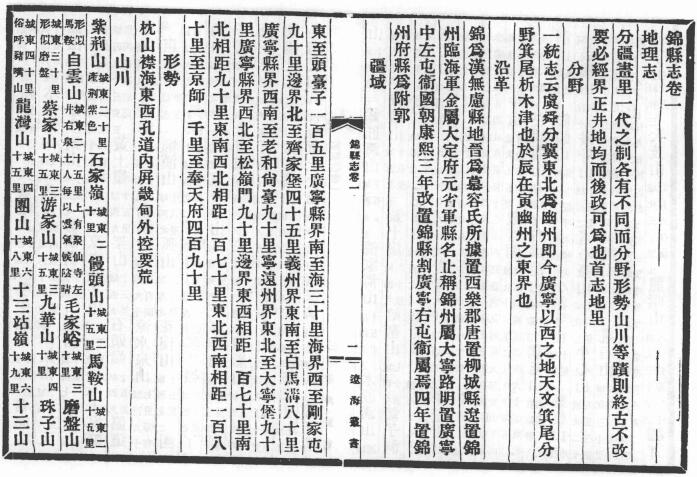 錦縣志卷一
地理志
分疆畫里一代之制各有不同而分野形勢山川等蹟則終古不改
要必經界正井地均而後政可爲也首志地里
分野
一統志云虞舜分冀東北為幽州即今廣寧以西之地天文箕尾分
野箕尾析木津也於辰在寅幽州之東界也
沿革
錦爲漢無慮縣地晉爲慕容氏所據置西樂郡唐置柳城縣遼置錦
州臨海軍金屬大定府元省軍縣名止稱錦州屬大寧路明置廣寧
中左屯衞國朝康熙三年改置錦縣割廣寧右屯衞屬焉四年置錦
州府縣爲附郭
疆域
錦縣志卷一
一
遼海叢書
東至頭臺子一百五里廣寧縣界南至海三十里海界西至剛家屯
九十里邊界北至齊家堡四十五里義州界東南至白馬溝八十里
廣寧縣界西南至老和尙臺九十里寧遠州界東北至大寧堡九十
里廣寧縣界西北至松嶺門九十里邊界東西相距一百七十里南
北相距九十里東南西北相距一百七十里東北西南相距一百八
十里至京師一千里至奉天府四百九十里
形勢
枕山襟海東西孔道內屏畿甸外控要荒
山川
紫荆山城東二十里產荆紫色石家嶺城東二十里饅頭山城東二十五里馬鞍山城東二十五里
形似馬鞍白雲山城東二十五里上有聚仙寺左井右泉土人每以雲氣候陰晴毛家峪城東三十里磨盤山
城東三十里形似磨盤蔡家山城東三十五里游家山城東三十五里九華山城東四十里珠子山
城東四十里俗呼豬嘴山龍灣山城東四十五里團山城東六十八里十三站嶺城東六十九里十三山